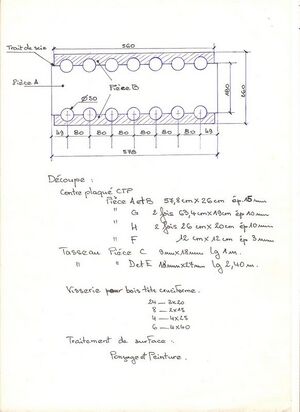 560
Trait de scie
Pièce A
Pièce B
Ø30
180
260
49 80 80 80 80 80 80 49
578
Découpe :
Contre plaqué CTP
Pièce A et B 57,8 cm x 26 cm ép 15 mm
" G 2 fois 63,4 cm x 19 cm ép 10 mm
" H 2 fois 26 cm x 20 cm ép 10 mm
" F 12 cm x 12 cm ép 3 mm
Tasseau Pièce C 9 mm x 18 mm Lg 1 m.
" " D et E 18 mm x 27 mm Lg 2,40 m.
Visserie pour bois tête cruciforme.
24 — 3x20
8 — 2x15
4 — 4x25
6 — 4x40
Traitement de surface :
Ponçage et Peinture.